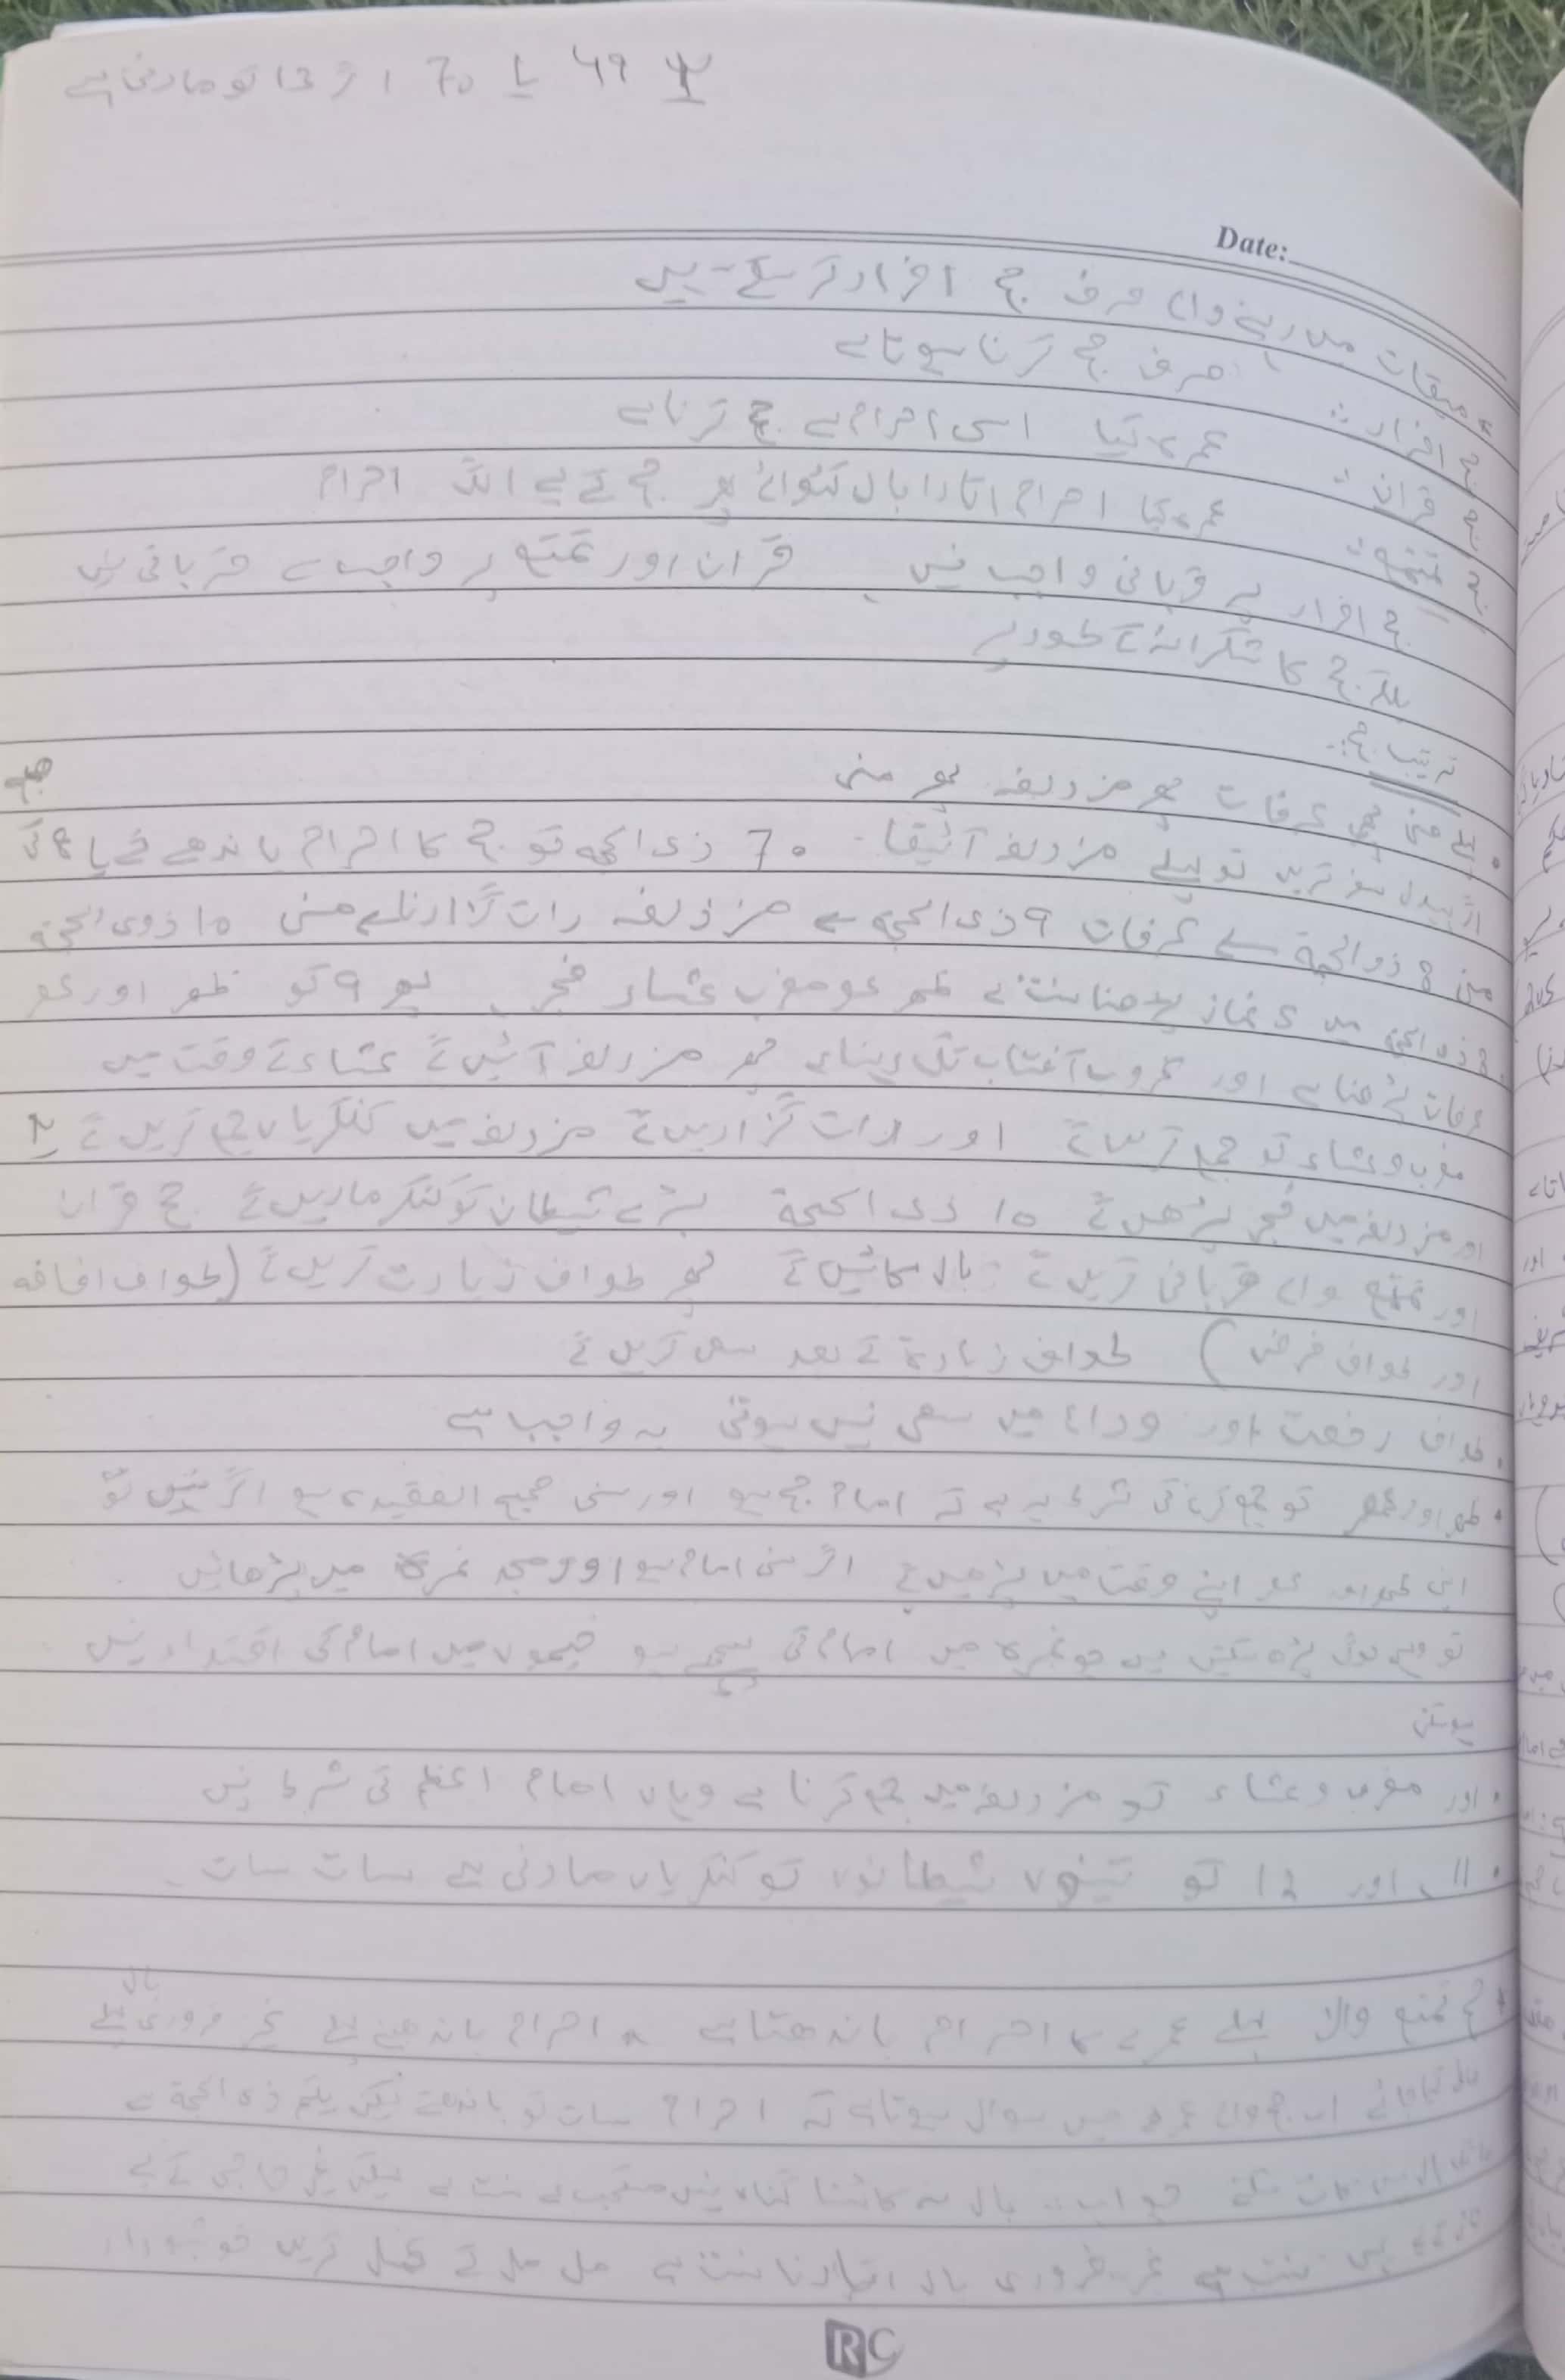 49 یا 70 اگر 13 کو مارنی ہے
Date:
میقات میں رہنے والے صرف حج افراد کر سکتے ہیں
حج افراد: صرف حج کرنا ہوتا ہے
حج قران: عمرہ کیا اسی احرام سے حج کرنا ہے
حج تمتع: عمرہ کیا احرام اتارا بال کٹوائے پھر حج کے لیے الگ احرام
حج افراد پہ قربانی واجب نہیں قران اور تمتع پر واجب ہے قربانی نہیں
بلکہ حج کا شکرانہ کے طور پر
ترتیب حج:
پہلے منی پھر عرفات پھر مزدلفہ پھر منی
اگر پیدل سفر کریں تو پہلے مزدلفہ آئیگا 7 ذی الحجہ کو حج کا احرام باندھے گے یا 8 کو
منی 8 ذوالحجۃ سے عرفات 9 ذی الحجہ سے مزدلفہ رات گزارنا ہے منی 10 ذوی الحجۃ
8 ذی الحجہ میں 5 نماز پڑھنا سنت ہے ظہر عصر مغرب عشاء فجر پھر 9 کو ظہر اور عصر
عرفات پڑھنا ہے اور غروب آفتاب تک رہنا ہے پھر مزدلفہ آئیں گے عشاء کے وقت میں
مغرب و عشاء کو جمع کریں گے اور رات گزاریں گے مزدلفہ میں کنکریاں جمع کریں گے
اور مزدلفہ میں فجر پڑھیں گے 10 ذی الحجۃ بڑے شیطان کو کنکر ماریں گے حج قران
اور تمتع والے قربانی کریں گے بال کاٹیں گے پھر طواف زیارت کریں گے (طواف افاضہ
اور طواف فرض) طواف زیارۃ کے بعد سعی کریں گے
طواف رخصت اور وداع میں سعی نہیں ہوتی یہ واجب ہے
ظہر اور عصر کو جمع کرنا کی شرط یہ ہے کہ امام حج ہو اور سنی صحیح العقیدہ ہو اگر نہیں تو
اپنی ظہر اور عصر اپنے وقت میں پڑھیں گے اگر سنی امام ہو اور مسجد نمرۃ میں پڑھائیں
تو وہی لوگ پڑھ سکتیں ہیں جو نمرہ میں امام کی پیچھے ہو خیموں میں امام کی اقتداء نہیں
ہوسکتی
اور مغرب و عشاء کو مزدلفہ میں جمع کرنا ہے وہاں امام اعظم کی شرط نہیں
11 اور 12 کو تینوں شیطانوں کو کنکریاں مارنی ہے سات سات
حج تمتع والا پہلے عمرے کا احرام باندھتا ہے احرام باندھنے سے پہلے غیر ضروری بال
احرام سات کو باندھے لیکن یکم ذی الحجۃ سے
جواب: بال نہ کاٹنا گناہ نہیں مستحب ہے سنت ہے لیکن غیر حاجی کے لیے
سنت ہے غیر ضروری بال اتارنا سنت ہے مل مل کے غسل کریں خوشبو
RC